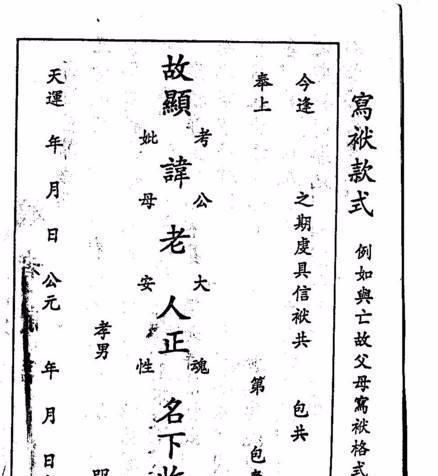 寫袱款式 例如與亡故父母寫袱格式
今逢 之期虔具信袱共 包共
奉上 第 包
考 公 大 魂
故顯 諱 老 人正 名下收
妣 母 安 性
孝男
天運 年 月 日 公元 年 月 日